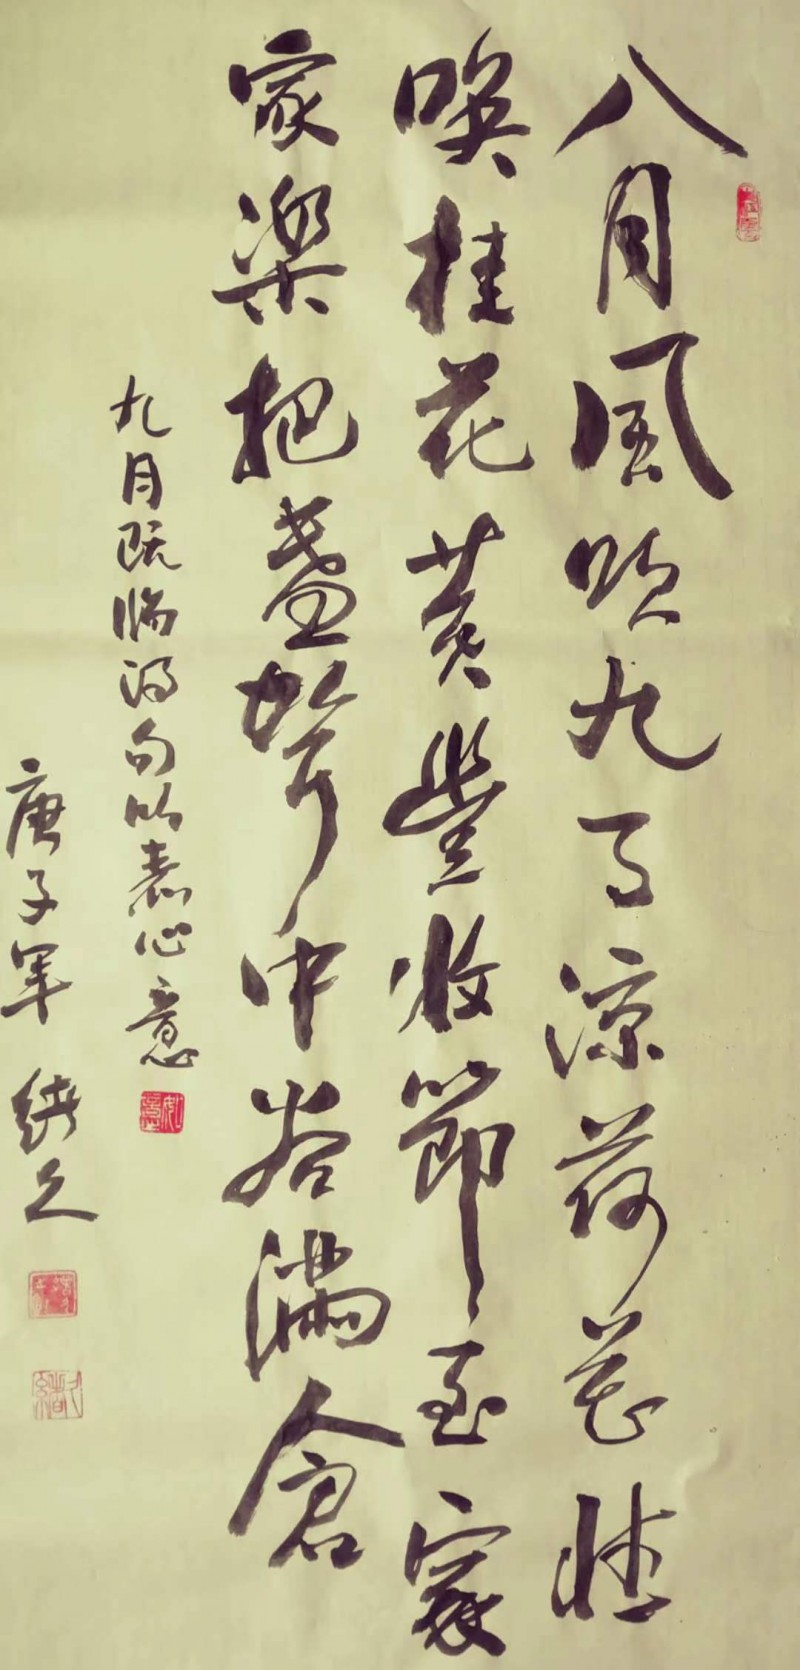 八月風吹九月涼荷花情
喚桂花黃豐收節至家
家樂把盞聲中谷滿倉
九月既临得句以表心意
庚子年